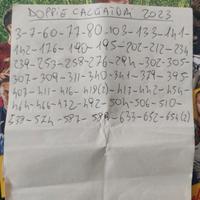 DOPPIE CALCIATORI 2023
3-7-60-77-80-103-133-141-
142-176-190-195-202-212-234
239-253-258-276-294-302-305-
307-309-311-340-341-379-395
403-411-416-418(2)-417-442-454-
464-466-472-492-504-506-510-
539-574-587-588-633-652-654(2)